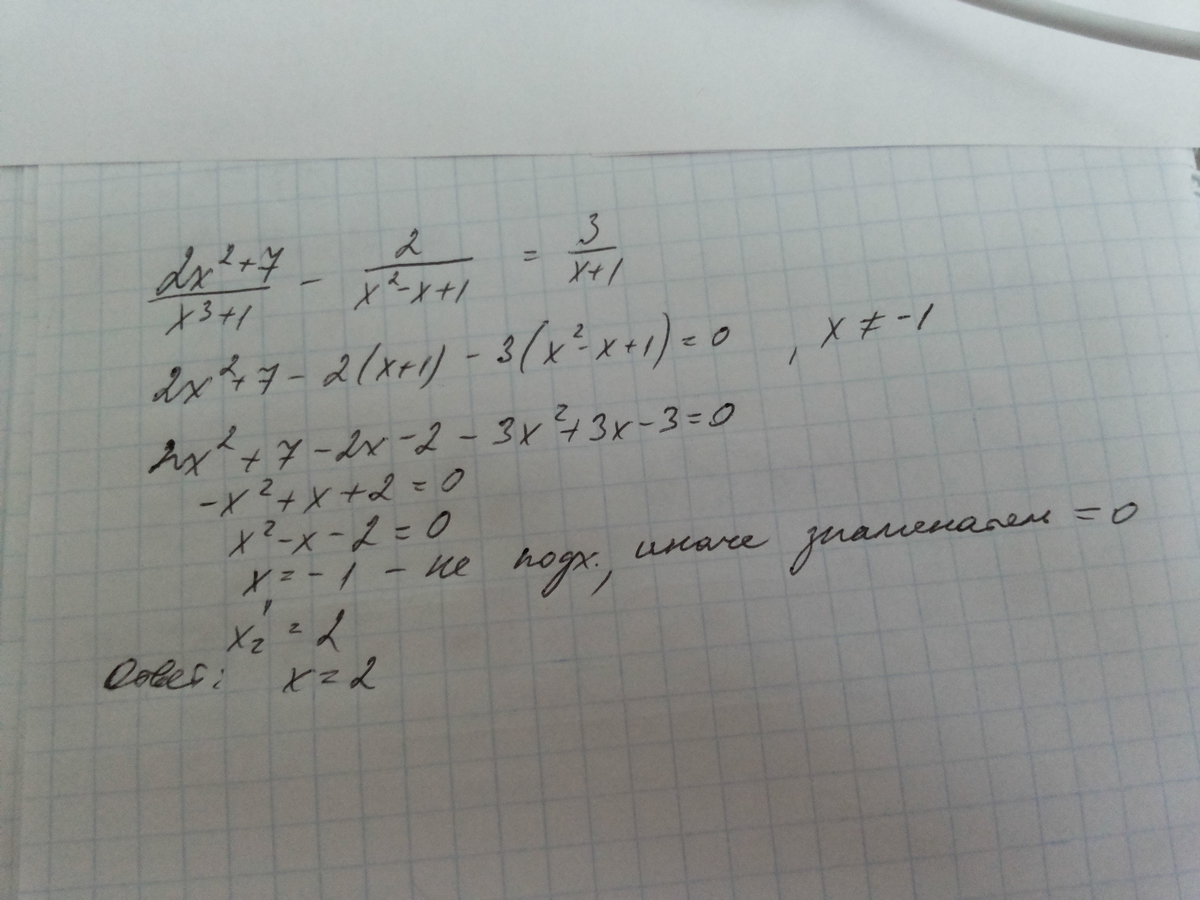 (2x²+7)/(x³+1) - 2/(x²-x+1) = 3/(x+1)
2x²+7 - 2(x+1) - 3(x²-x+1) = 0 , x ≠ -1
2x² + 7 - 2x - 2 - 3x² + 3x - 3 = 0
-x² + x + 2 = 0
x² - x - 2 = 0
x₁ = -1 - не подх., иначе знаменатель = 0
x₂ = 2
Ответ: x = 2